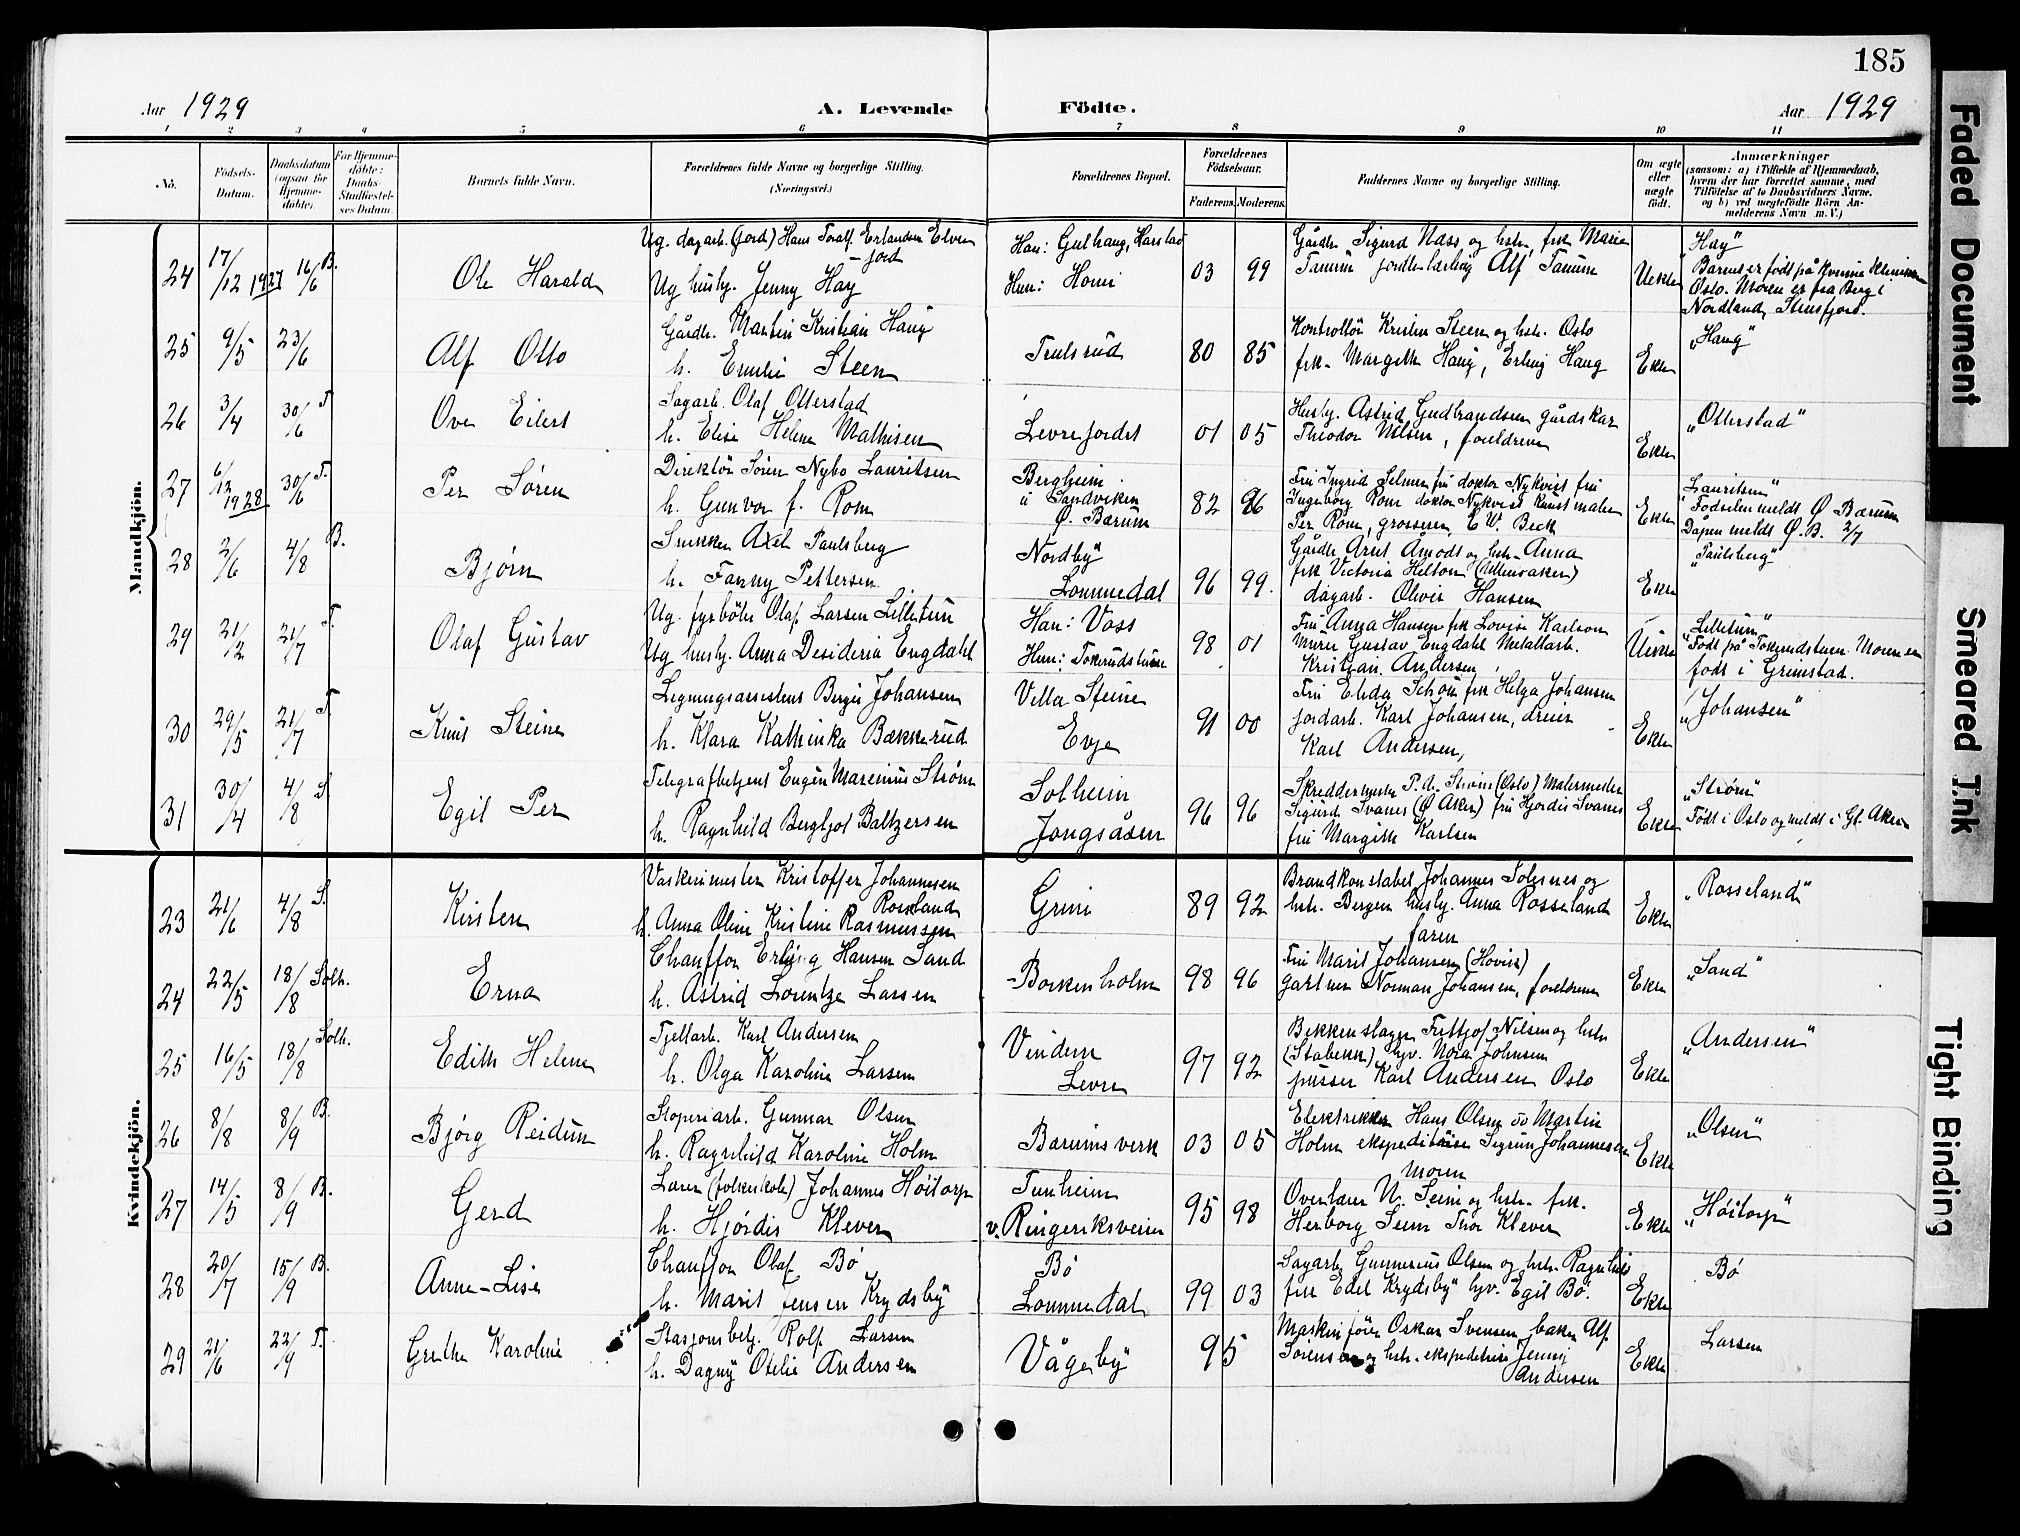 185
Aar 1929 A. Levende Födte. Aar 1929
1 2 3 4 5 6 7 8 9 10 11
No.
Födsels-Datum.
Daabsdatum (ogsaa for Hjemme-döbte).
For Hjemme-döbte: Daabs-Stadfæstel-ses Datum.
Barnets fulde Navn.
Forældrenes fulde Navne og borgerlige Stilling. (Næringsvei.)
Forældrenes Bopæl.
Forældrenes Födselsaar.
Faderens. Moderens.
Faddernes Navne og borgerlige Stilling.
Om ægte eller uægte födt.
Anmærkninger
(saasom: a) i Tilfælde af Hjemmedaab, hvem der har forrettet samme, med Tilföielse af to Daabsvidners Navne, og b) ved uægtefödte Börn An-melderens Navn m. V.)
Mandkjön.
24 17/12 1927 16/6 B. Ole Harald
Ug. dagarb. (jord) Hans Toralf Erlandsen Elve-
jord
Ug husby. Jenny Hay
Han: Gulhaug, Harstad
Hun: Homi
03 99
Gårdbr. Sigurd Næss og hstr., frk Marie
Tanum jordbr lærling Alf Tanum
Uekte
"Hay"
Barnet er født på Kvinne Klinikken
Oslo. Moren er fra Berg i
Nordland, Steusfjord.
25 9/5 23/6 Alf Otto
Gårdbr. Martin Kristian Haug
h. Emilie Steen
Trulsrud
80 85
Kontrollör Kristen Steen og hstr. Oslo
frk. Margith Haug, Erling Haug
Ekte
"Haug"
26 3/4 30/6 T. Ove Eilert
Sagarb. Olaf Otterstad
h. Elise Helene Mathisen
Levrefjordet
01 05
Husby. Astrid Gudbrandsen gårdskar
Theodor Nilsen, foreldrene
Ekte
"Otterstad"
27 6/12 1928 30/6 T. Per Sören
Direktör Sören Nybo Lauritsen
h. Gunvor f. Rom
Bergheim
i Sandviken
Ø. Bærum
82 96
Fru Ingrid Selmer fru doktor Nykvist fru
Ingeborg Rom doktor Nykvist kunstmaler
Per Rom, grosserer E. W. Beck
Ekte
"Lauritsen"
Fødselen meldt Ø. Bærum
Dåpen meldt Ø. B. 2/7
28 2/6 4/8 B. Björn
Snekker Axel Paulsberg
h. Fanny Pettersen
Nordby
Lommedal
96 99
Gårdbr. Arnt Åmodt og hstr. Anna
frk Victoria Helton
dagarb. Oliver Hansen
Ekte
"Paulsberg"
29 21/2 21/7 T. Olaf Gustav
Ug. fyrböter Olaf Larsen Lilletun
Ug husby. Anna Desideria Engdahl
Han: Voss
Hun: Tokerudstuen
98 01
Fru Anna Hansen frk Lovise Karlson
Murer Gustav Engdahl Metallarb.
Kristian Andersen
Uekte
"Lilletun"
Født på Tokerudstuen. Moren er
født i Grimstad.
30 29/5 21/7 T. Knut Steine
Legningsassistent Berger Johansen
h. Klara Kathinka Bækkerud
Villa Steine
Evje
91 00
Fru Elida Schou frk Helga Johansen
jordarb. Karl Johansen, dreier
Karl Andersen,
Ekte
"Johansen"
31 30/4 4/8 S. Egil Per
Telegrafbetjent Eugen Marenius Ström
h. Ragnhild Bergljot Baltzersen
Solheim
Jongsåsen
96 96
Skreddermester P. de Ström (Oslo) Malermester
Sigurd Svanes (Ø Aker) fru Hjordis Svanes
fru Margith Karlsen
Ekte
"Ström"
Født i Oslo og meldt i Gl. Aker
Kvindekjön.
23 21/6 4/8 S. Kirsten
Vaskerimester Kristoffer Johannesen
Rosseland
h. Anna Oline Kristine Rasmussen
Grini
89 92
Brandkonstabel Johannes Solesnes og
hstr. Bergen husby. Anna Rosseland
faren
Ekte
"Rosseland"
24 22/5 18/8 Solh. Erna
Chauffør Erling Hansen Sand
h. Astrid Lorentze Larsen
Borkenholm
98 96
Fru Marit Johansen (Hövik)
Gartner Norman Johansen, foreldrene
Ekte
"Sand"
25 16/5 18/8 Solh. Edith Helene
Fjellarb. Karl Andersen
h. Olga Karoline Larsen
Vindern
Levre
97 92
Bekkenslager Fritjof Nilsen og hstr
(Stabekk) hjv. Nora Johnsen
pusser Karl Andersen Oslo
Ekte
"Andersen"
26 8/8 8/9 B. Bjørg Reidun
Stoperiarb. Gunnar Olsen
h. Ragnhild Karoline Holm
Bærums verk
03 05
Elektriker Hans Olsen og Martin
Holm ekspeditrise Sigrun Johannesen
Moren
Ekte
"Olsen"
27 14/5 8/9 B. Gerd
Lærer (folkeskole) Johannes Höitorp
h. Hjördis Klever
Tunheim
v. Ringeriksveien
95 98
Overlærer N. Seim og hstr. frk.
Herborg Seim Thor Klever
Ekte
"Höitorp"
28 20/7 15/9 B. Anne-Lise
Chauffør Olaf Bö
h. Marit Jensen Krydsby
Bö
Lommedal
99 03
Sagarb. Gunnerius Olsen og hstr. Ragnhild
frk Edel Krydsby hjv. Egil Bö.
Ekte
Bö
29 21/6 22/9 T. Grethe Karoline
Stasjonsbetj. Rolf Larsen
h. Dagny Otelie Andersen
Vågeby
95
Maskinförer Oskar Svensen, baker Alf
Sörensen og hstr. ekspeditrise Jenny
Andersen
Ekte
Larsen
Faded Document
Smeared Ink
Tight Binding